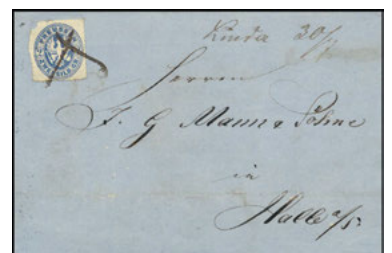 Kinder 30/
Herrn
F. G. Mann & Söhne
in
Halle a/S